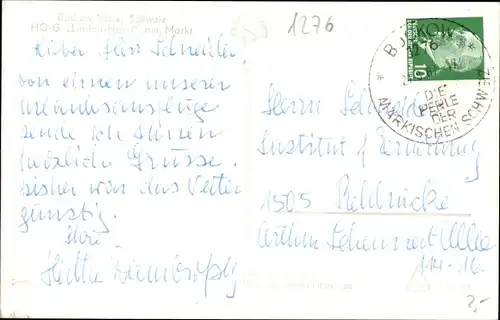 1276
HO-G "Linden-Hotel" am Markt
Lieber Herr Schneider,
von einem unserer
Urlaubsausflüge
sende ich Ihnen
herzliche Grüsse.
Bisher war das Wetter
günstig.
Ihre
BUCKOW
DIE
PERLE
DER
MÄRKISCHEN SCHWEIZ
10
Herrn Schneider
Institut f. Ernährung
1505 Rehbrücke
Arthur Scheunert Allee
114-16
2,-